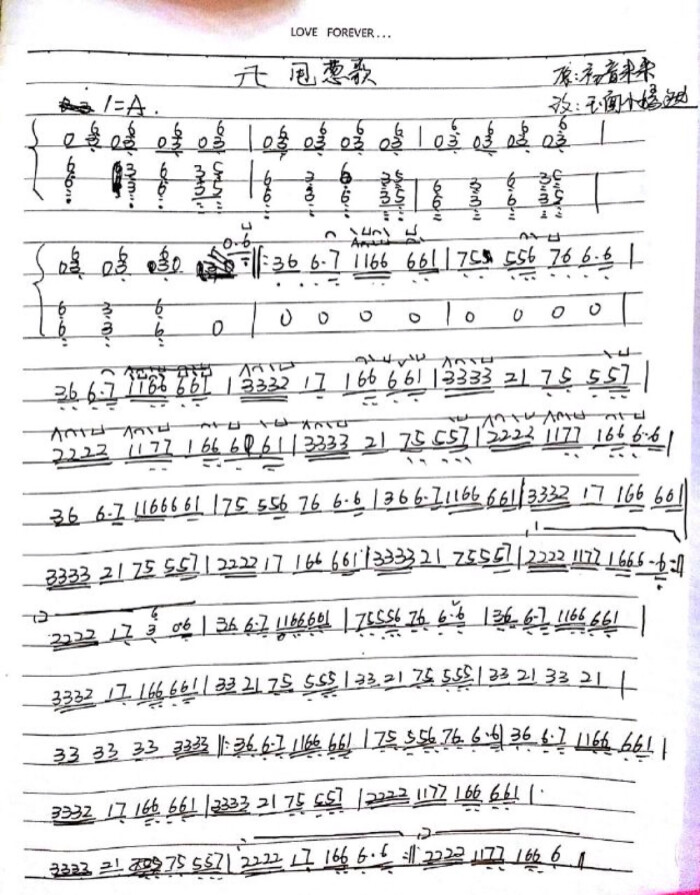 LOVE FOREVER...
甩葱歌
原:初音未来
改:玉面小
1=A.
0 6/3 0 6/3 0 6/3 0 6/3 | 0 6/3 0 6/3 0 6/3 0 6/3 | 0 6/3 0 6/3 0 6/3 0 6/3 |
6/6 3/3 6/6 3/3 5/5 | 6/6 3/3 6/6 3/3 5/5 | 6/6 3/3 6/6 3/3 5/5 |
0 6/3 0 6/3 0 3 0 0.6 ||: 36 6.7 1166 661 | 75 556 76 6.6 |
6/6 3/3 6/6 0 | 0 0 0 0 | 0 0 0 0 |
36 6.7 1166 661 | 3332 17 166 661 | 3333 21 75 557 |
2222 1177 166 661 | 3333 21 75 557 | 2222 1177 166 6.6 |
36 6.7 1166661 | 75 556 76 6.6 | 36 6.7 1166 661 | 3332 17 166 661 |
3333 21 75 557 | 2222 17 166 661 | 3333 21 75557 | 1 2222 1177 1666.6 :||
2 2222 17 6/3 06 | 36 6.7 1166661 | 75556 76 6.6 | 36 6.7 1166 661 |
3332 17 166661 | 33 21 75 555 | 33 21 75 555 | 33 21 33 21 |
33 33 33 3333 ||: 36 6.7 1166 661 | 75 556 76 6.6 | 36 6.7 1166 661 |
3332 17 166 661 | 3333 21 75 557 | 2222 1177 166 661 |
3333 21 75 557 | 2222 17 166 6.6 :|| 2 2222 1177 166 6 ||